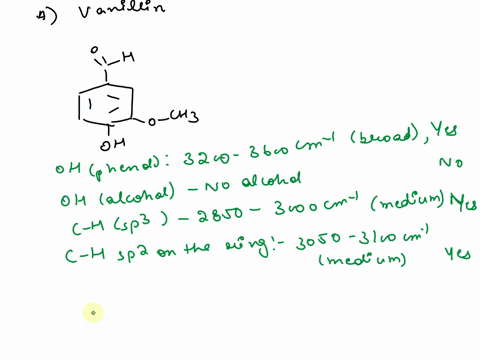 A) Vanillin
O
H
O-CH3
OH
OH (phenol): 3200-3600 cm-1 (broad), Yes
OH (alcohol) - No alcohol No
C-H (sp3) - 2850 - 3000 cm-1 (medium) Yes
C-H sp2 on the ring:- 3050-3100 cm-1
(medium) Yes